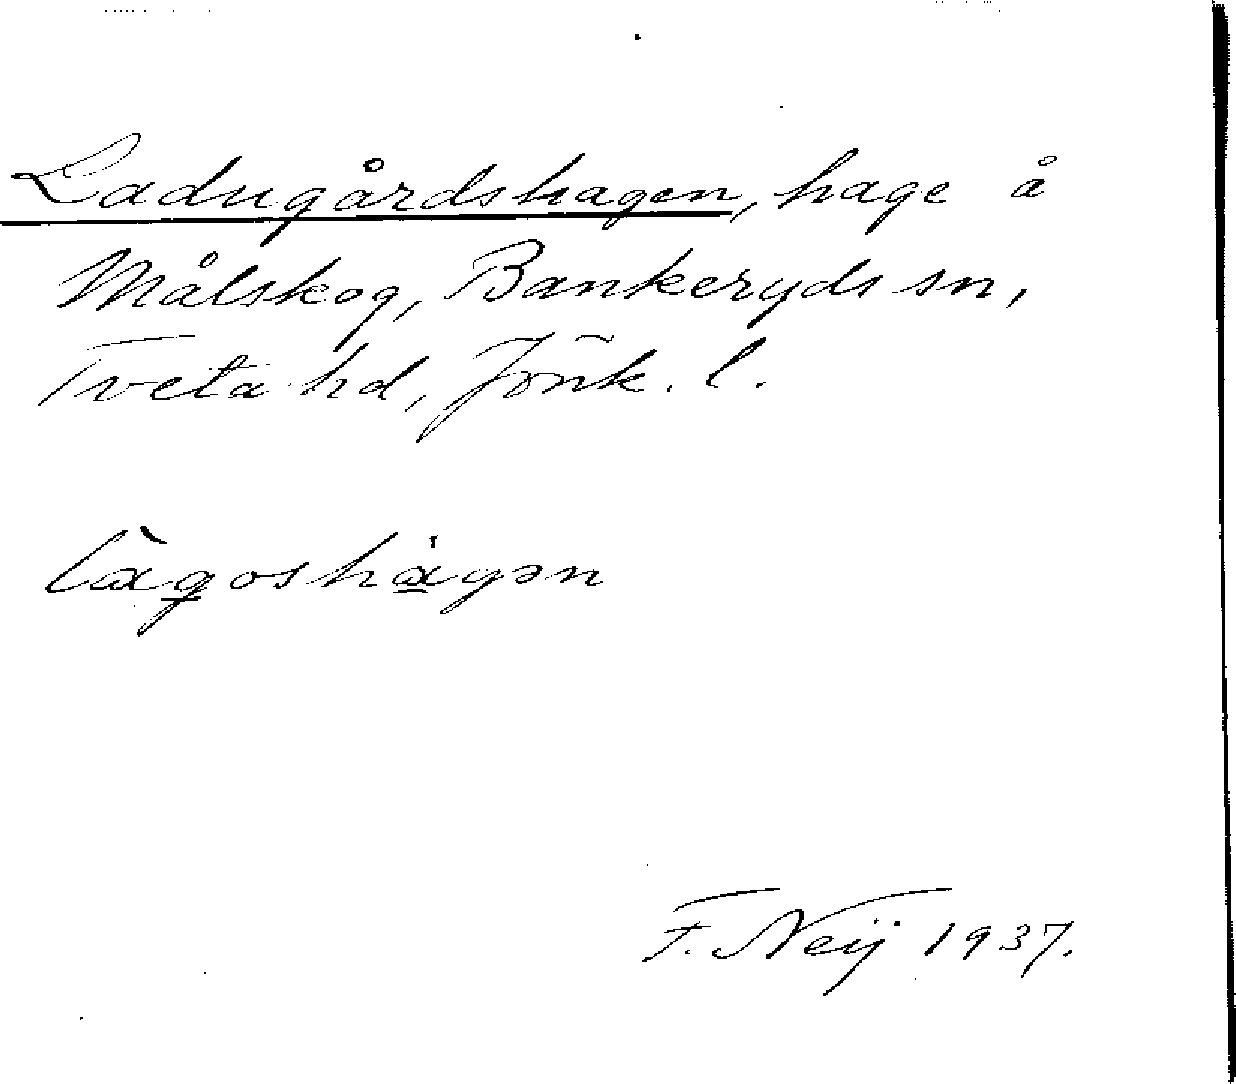 Ladugårdshagen, hage å
Målskog, Bankeryds sn,
Tveta hd, Jönk. l.
làgoshagən
F. Neij 1937.